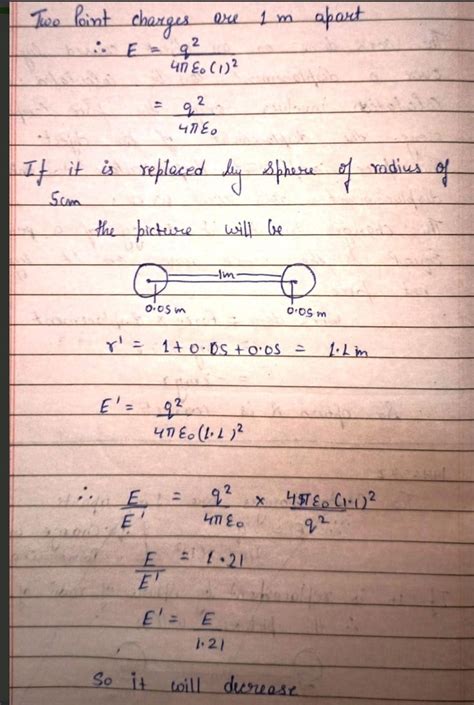 Two Point charges are 1 m apart
∴ E = q²/4πε₀(1)²
= q²/4πε₀
If it is replaced by sphere of radius of
5cm
the picture will be
1m
0.05m 0.05m
r' = 1+0.05+0.05 = 1.1m
E' = q²/4πε₀(1.1)²
∴ E/E' = q²/4πε₀ × 4πε₀(1.1)²/q²
E/E' = 1.21
E' = E/1.21
So it will decrease